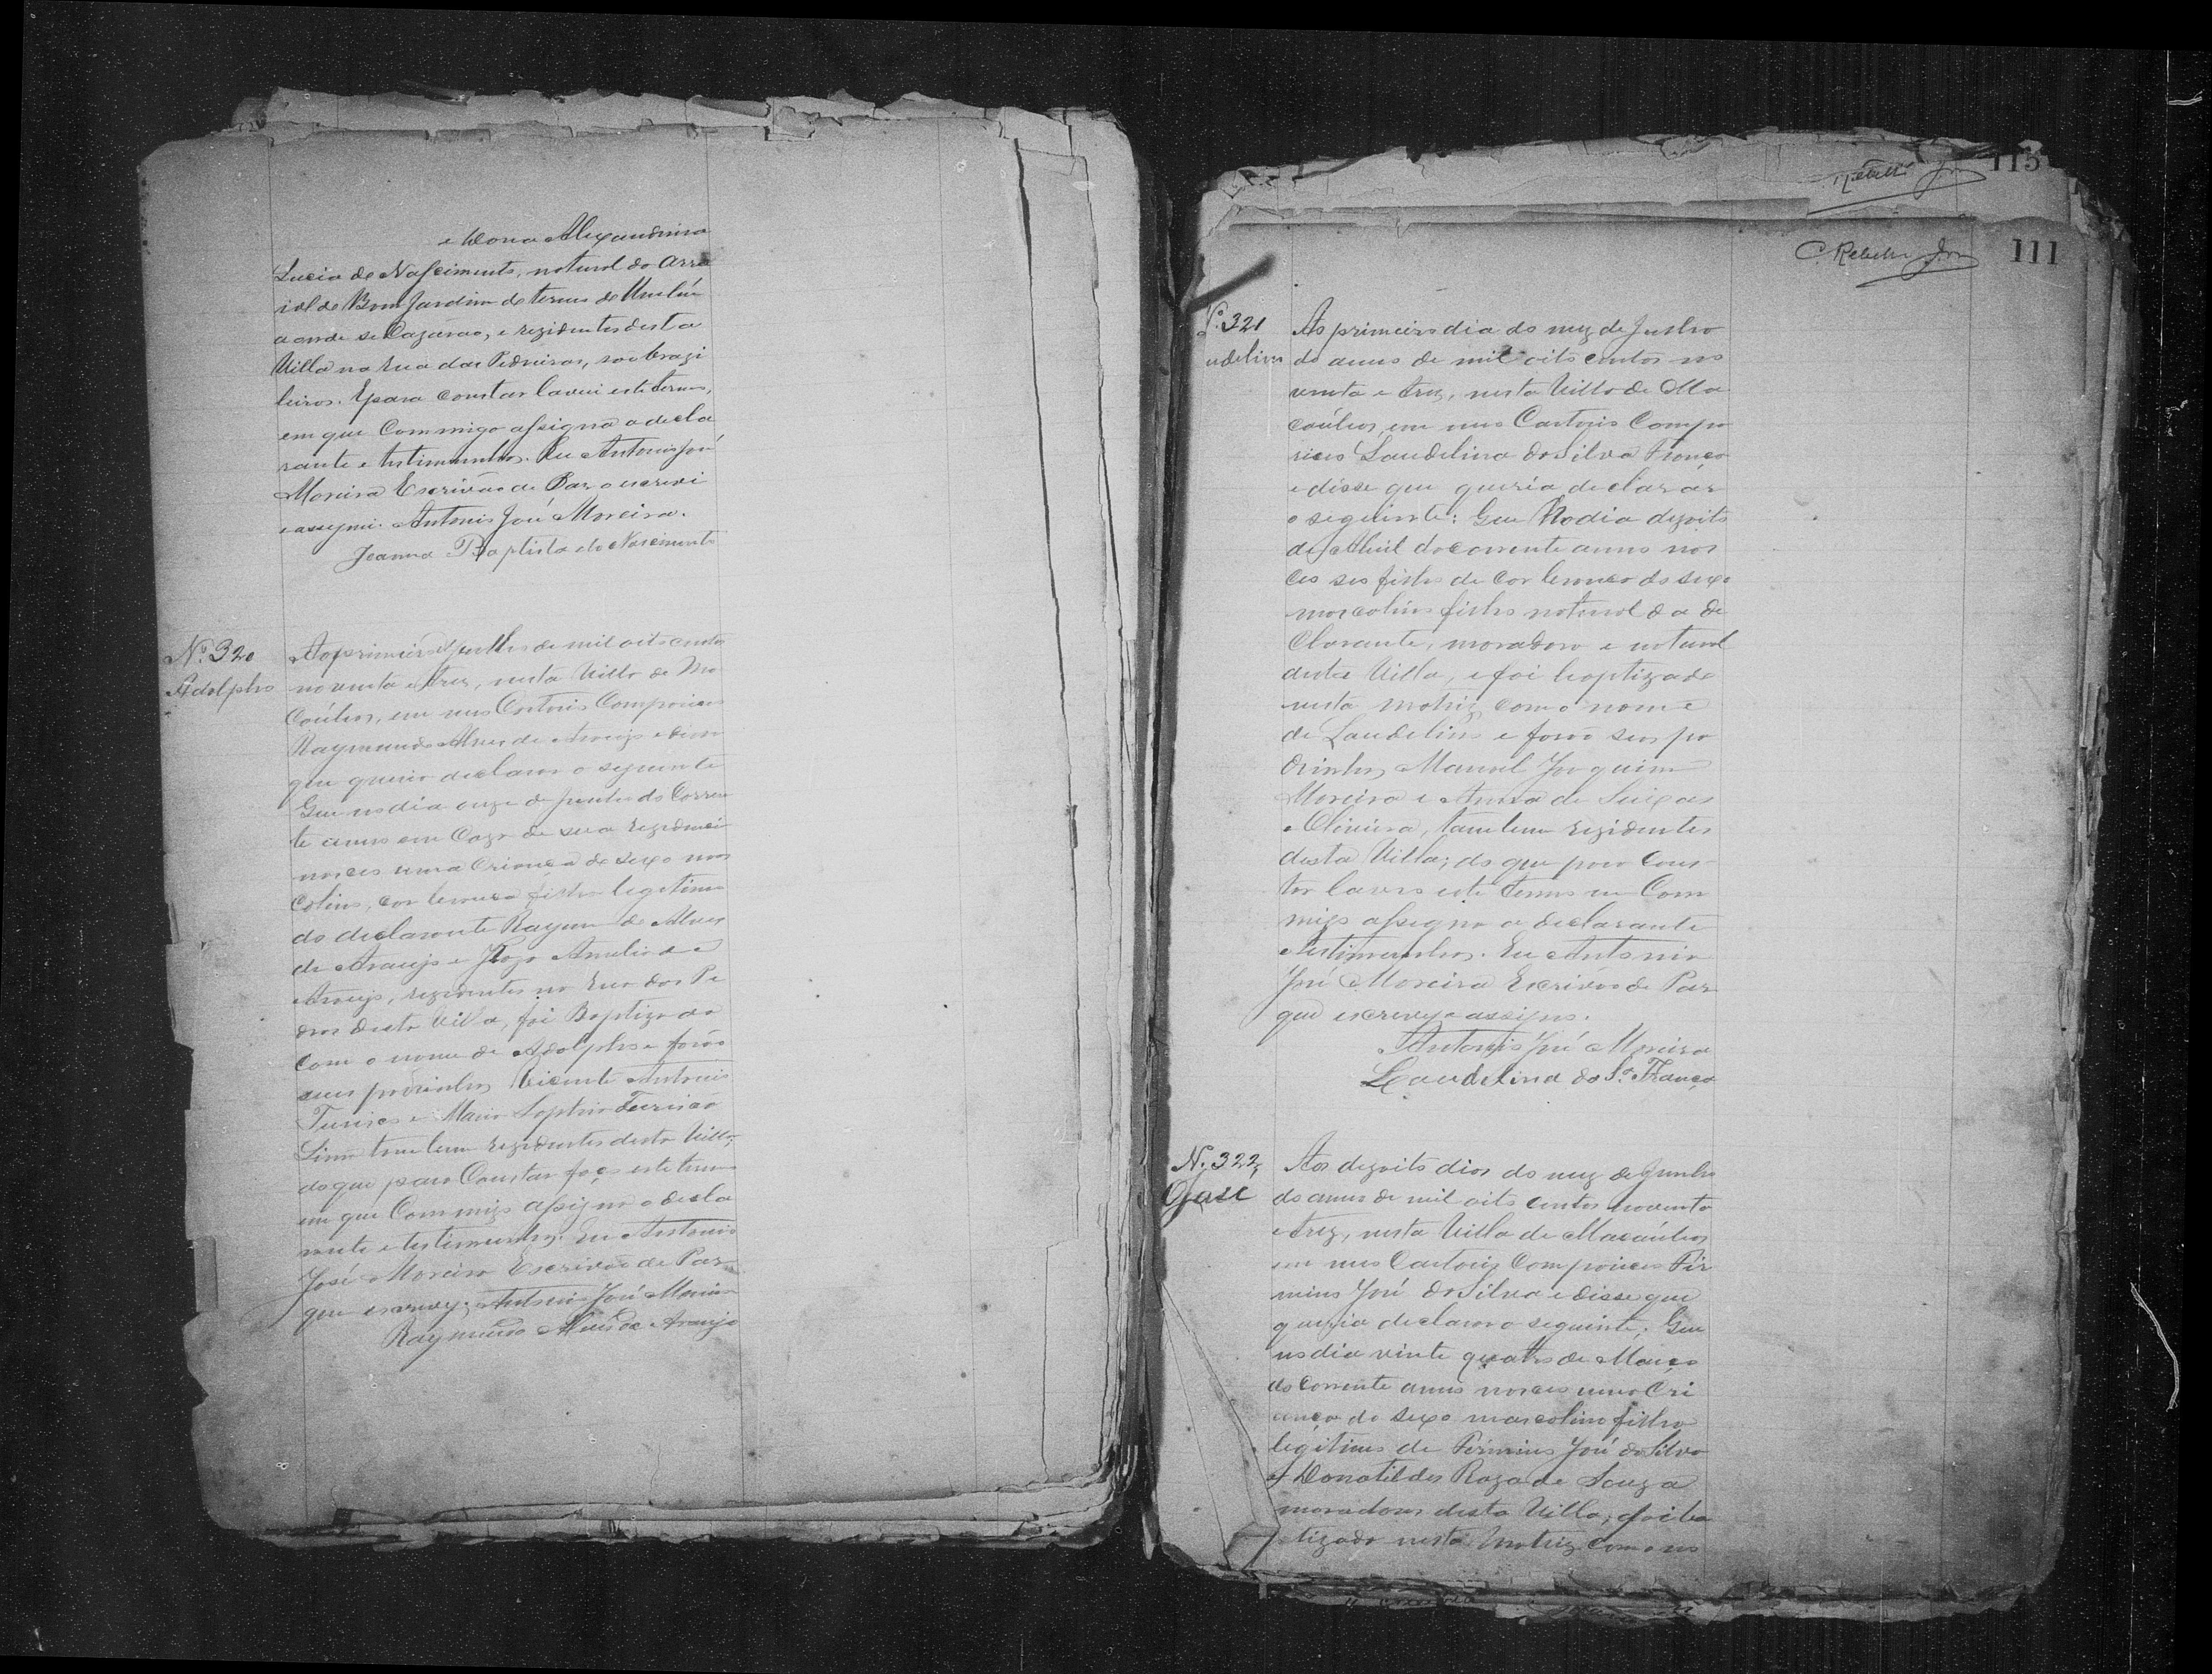 e Dona Alexandrina
Lucia do Nascimento, natural do Arra
ial de Bom Jardim do termo de Urubú
aonde se Cazarao, e rezidentes desta
Villa na rua das Pedreiras, são brazi
leiros. E para constar lavrei este termo,
em que Commigo assigna o decla
rante e testimunhas. Eu Antonio José
Moreira Escrivão de Paz o escrevi
e assignei. Antonio José Moreira.
Joanna Baptista do Nascimento
Nº 320
Adolpho
Ao primeiro de Julho de mil oito centos
noventa e trez, nesta Villa de Ma
caúbas, em meu Cartorio Compareceu
Raymundo Alves de Araujo e disse
que queria declarar o seguinte
Que no dia onze de Junho do Corren
te anno em Caza de sua rezidencia
nasceo uma Criança de sexo mas
colino, cor branca filho legitimo
do declarante Raymundo Alves
de Araujo e Amelia de
Araujo, rezidentes na rua das Pe
dras desta Villa, foi Baptizado
com o nome de Adolpho e forão
seus padrinhos Vicente Antonio
e Maria Sophia
Lima tambem rezidentes desta Villa;
do que para Constar faço este termo
em que Commigo assigna o decla
rante e testimunhas. Eu Antonio
José Moreira Escrivão de Paz
que escrevy. Antonio José Moreira
Raymundo Alves de Araujo
115
C Rebello Jor
111
Nº 321
udelino
Ao primeiro dia do mez de Junho
do anno de mil oito centos no
venta e trez, nesta Villa de Ma
caúbas, em meu Cartorio Compa
receo Laudelina da Silva França
e disse que queria declarar
o seguinte: Que No dia dezoito
de Abril do corrente anno nas
ceo seo filho de cor branca do sexo
mascolino filho natural da de
clarante, moradora e natural
desta Villa, e foi baptizado
nesta matriz com o nome
de Laudelino e forão seus pa
drinhos Manoel Joaquim
Moreira e Anna de Seixas
e Oliveira, tambem rezidentes
desta Villa; do que para Cons
tar lavro este termo em Com
migo assigna a declarante
e testimunhas. Eu Antonio
José Moreira Escrivão de Paz
que escrevy e assigno.
Antonio José Moreira
Laudelina da Sª França
N. 322
José
Aos dezoito dias do mez de Junho
do anno de mil oito centos noventa
e trez, nesta Villa de Macaúbas
em meu Cartorio Compareceo Fir
mino José da Silva e disse que
queria declarar o seguinte; Que
no dia vinte quatro de Março
do Corrente anno nasceo uma Cri
ança do sexo mascolino filho
legitimo de Firmino José da Silva
e Donatildes Roza de Souza
moradores desta Villa; foi ba
tizado nesta Matriz com o no